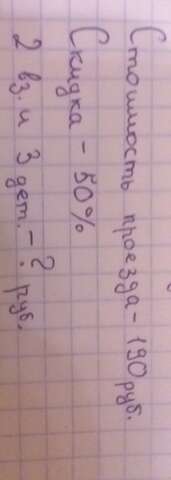 Стоимость проезда - 190 руб.
Скидка - 50%
2 вз. и 3 дет. - ? руб.